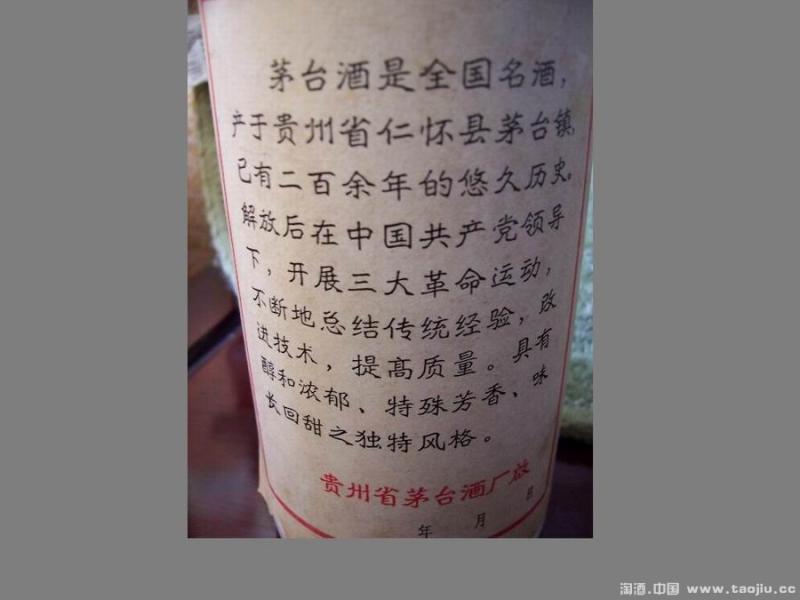 茅台酒是全国名酒，
产于贵州省仁怀县茅台镇，
已有二百余年的悠久历史。
解放后在中国共产党领导
下，开展三大革命运动，
不断地总结传统经验，改
进技术，提高质量。具有
醇和浓郁、特殊芳香、味
长回甜之独特风格。
贵州省茅台酒厂启
年 月 日
淘酒.中国 www.taojiu.cc